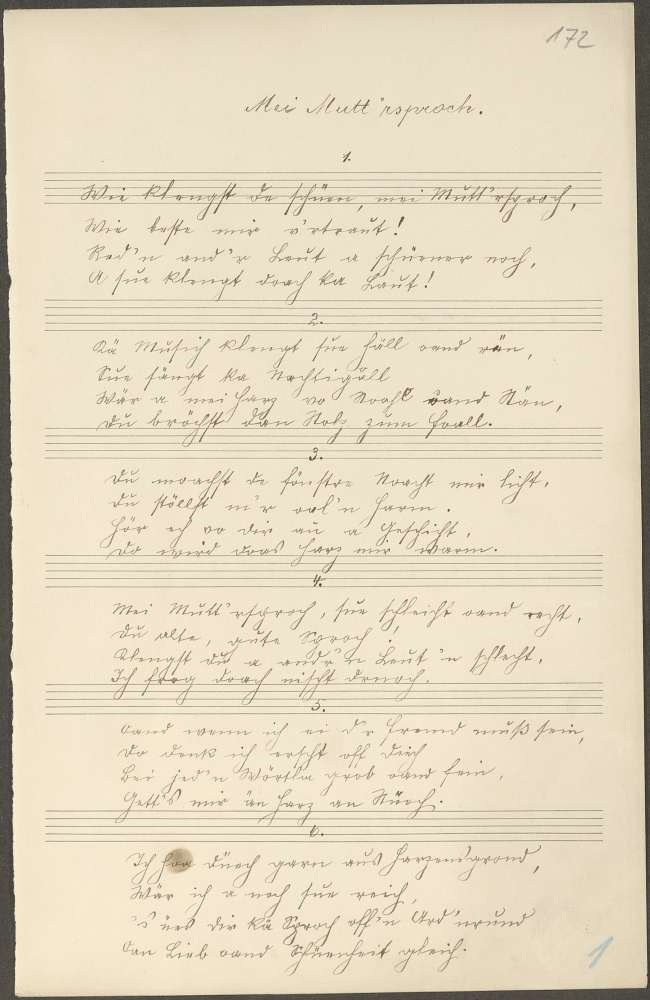 172
Mei Mutt'rsproch.
1.
Wie klengst de schüen, mei Mutt'rsproch,
Wie beste mir v'rtraut!
Red'n and'r Leut a schüener noch,
A sue klengt doach ka Laut!
2.
Kä Musich klengt sue häll oand rän,
Sue sängt ka Nachtigoll
Wär a mei Harz vo Stoahl oand Stän,
Du bröchst dan Stolz zum Foall.
3.
Du moachst de fönstre Noacht mir licht,
Du ställst m'r oal'n Harm.
Hör ech vo dir an a Geschicht,
Do wird doas Harz mir warm.
4.
Mei Mutt'rsproch, sue schleicht oand recht,
Du alte, gute Sproch!
Klengst du a and'r'n Leut'n schlecht,
Ich frog doach nischt drnoch.
5.
Oand wenn ich ei d'r Fremd muß sein,
Do denk ich erscht off diech
Bei jed'n Wörtla grob oand fein,
Gett's mir än Harz an Stiech.
6.
Ich hoa düch garn aus Harzensgrond,
Wär ich a noch sue reich,
's ües dir kä Sproch off'n Ard'nrund
Oan Lieb oand Schüenheit gleich.
1